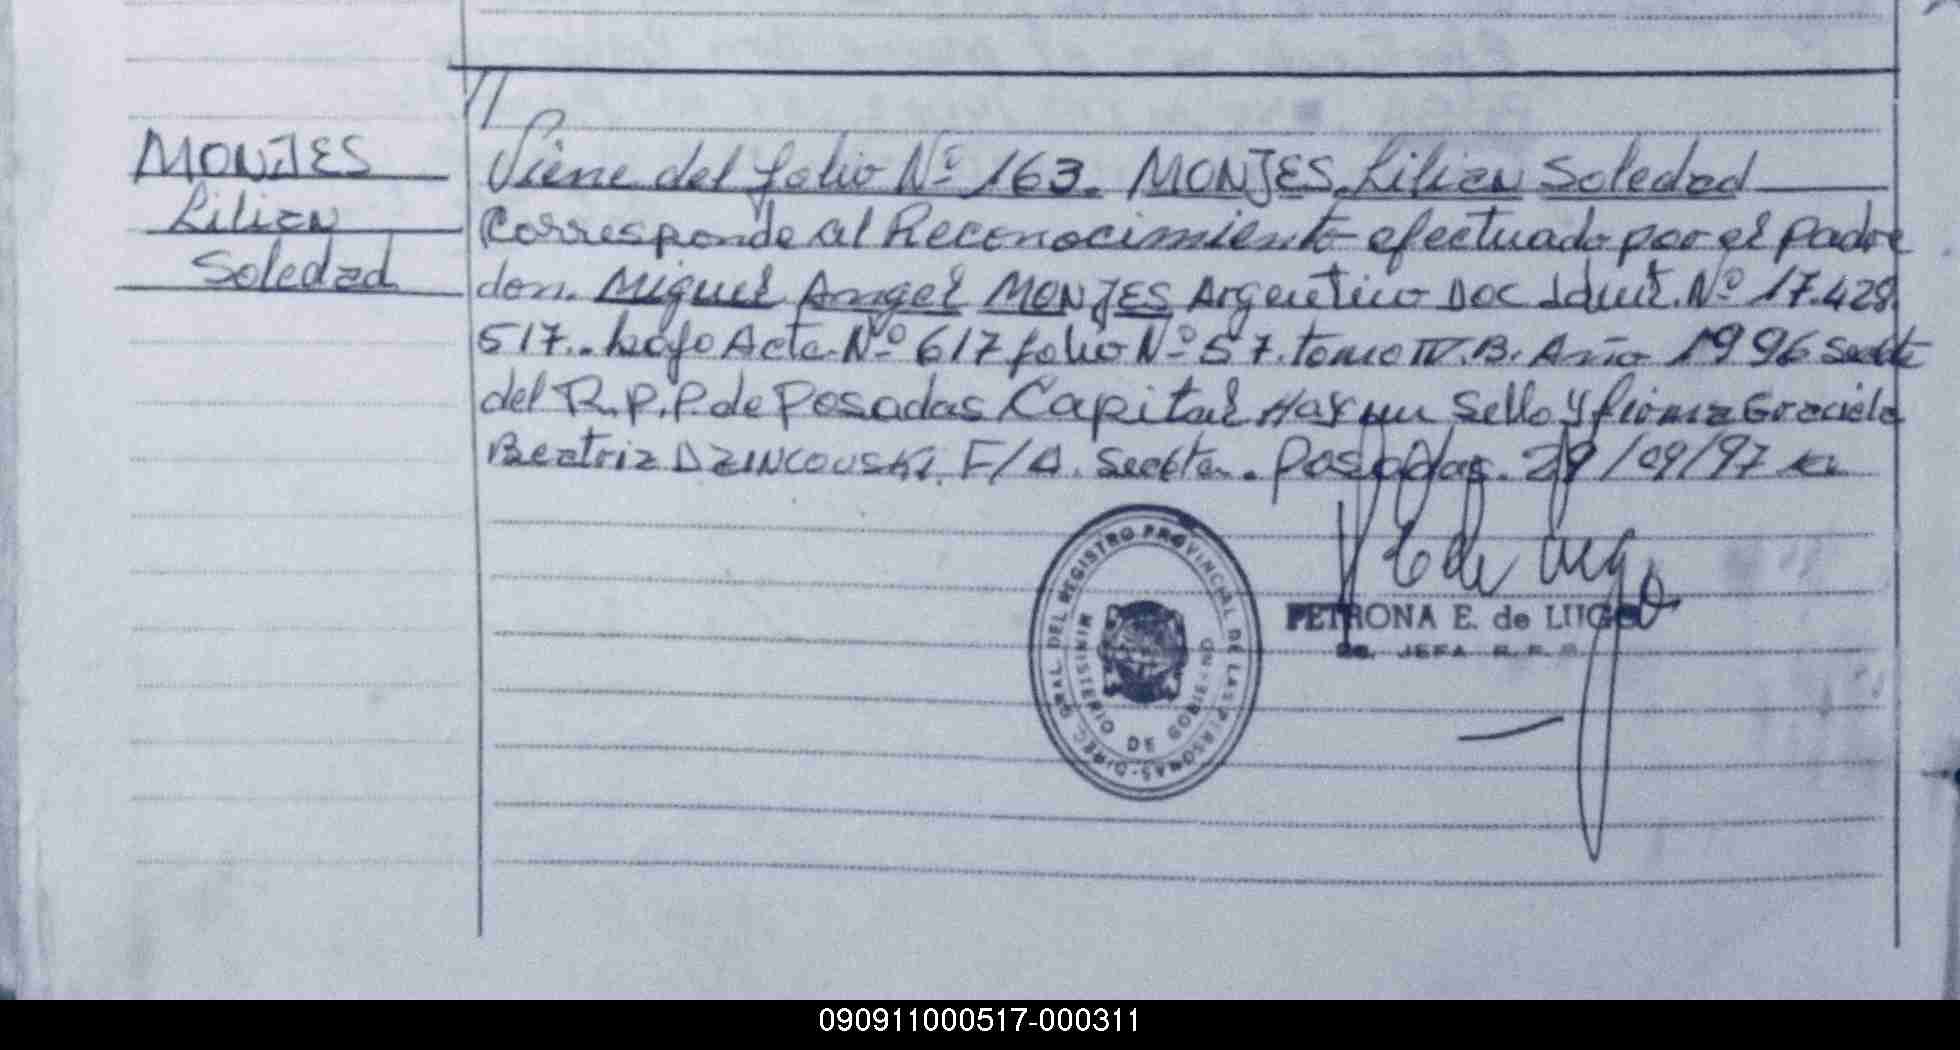 MONJES
Lilian
Soledad
Viene del folio Nº 163. MONJES, Lilian Soledad
Corresponde al Reconocimiento efectuado por el padre
don. Miguel Angel MONJES Argentino Doc Ident. Nº 17.428.
517.. bajo Acta Nº 617 folio Nº 57. tomo IV. B. Año 1996
del R.P.P. de Posadas Capital Hay un Sello y firma Graciela
Beatriz DZINCOUSKI. F/A. Posadas. 29/09/97
DIREC. GRAL. DEL REGISTRO PROVINCIAL DE LAS PERSONAS
MINISTERIO DE GOBIERNO
PETRONA E. de LUGO
JEFA R.P.P.
090911000517-000311